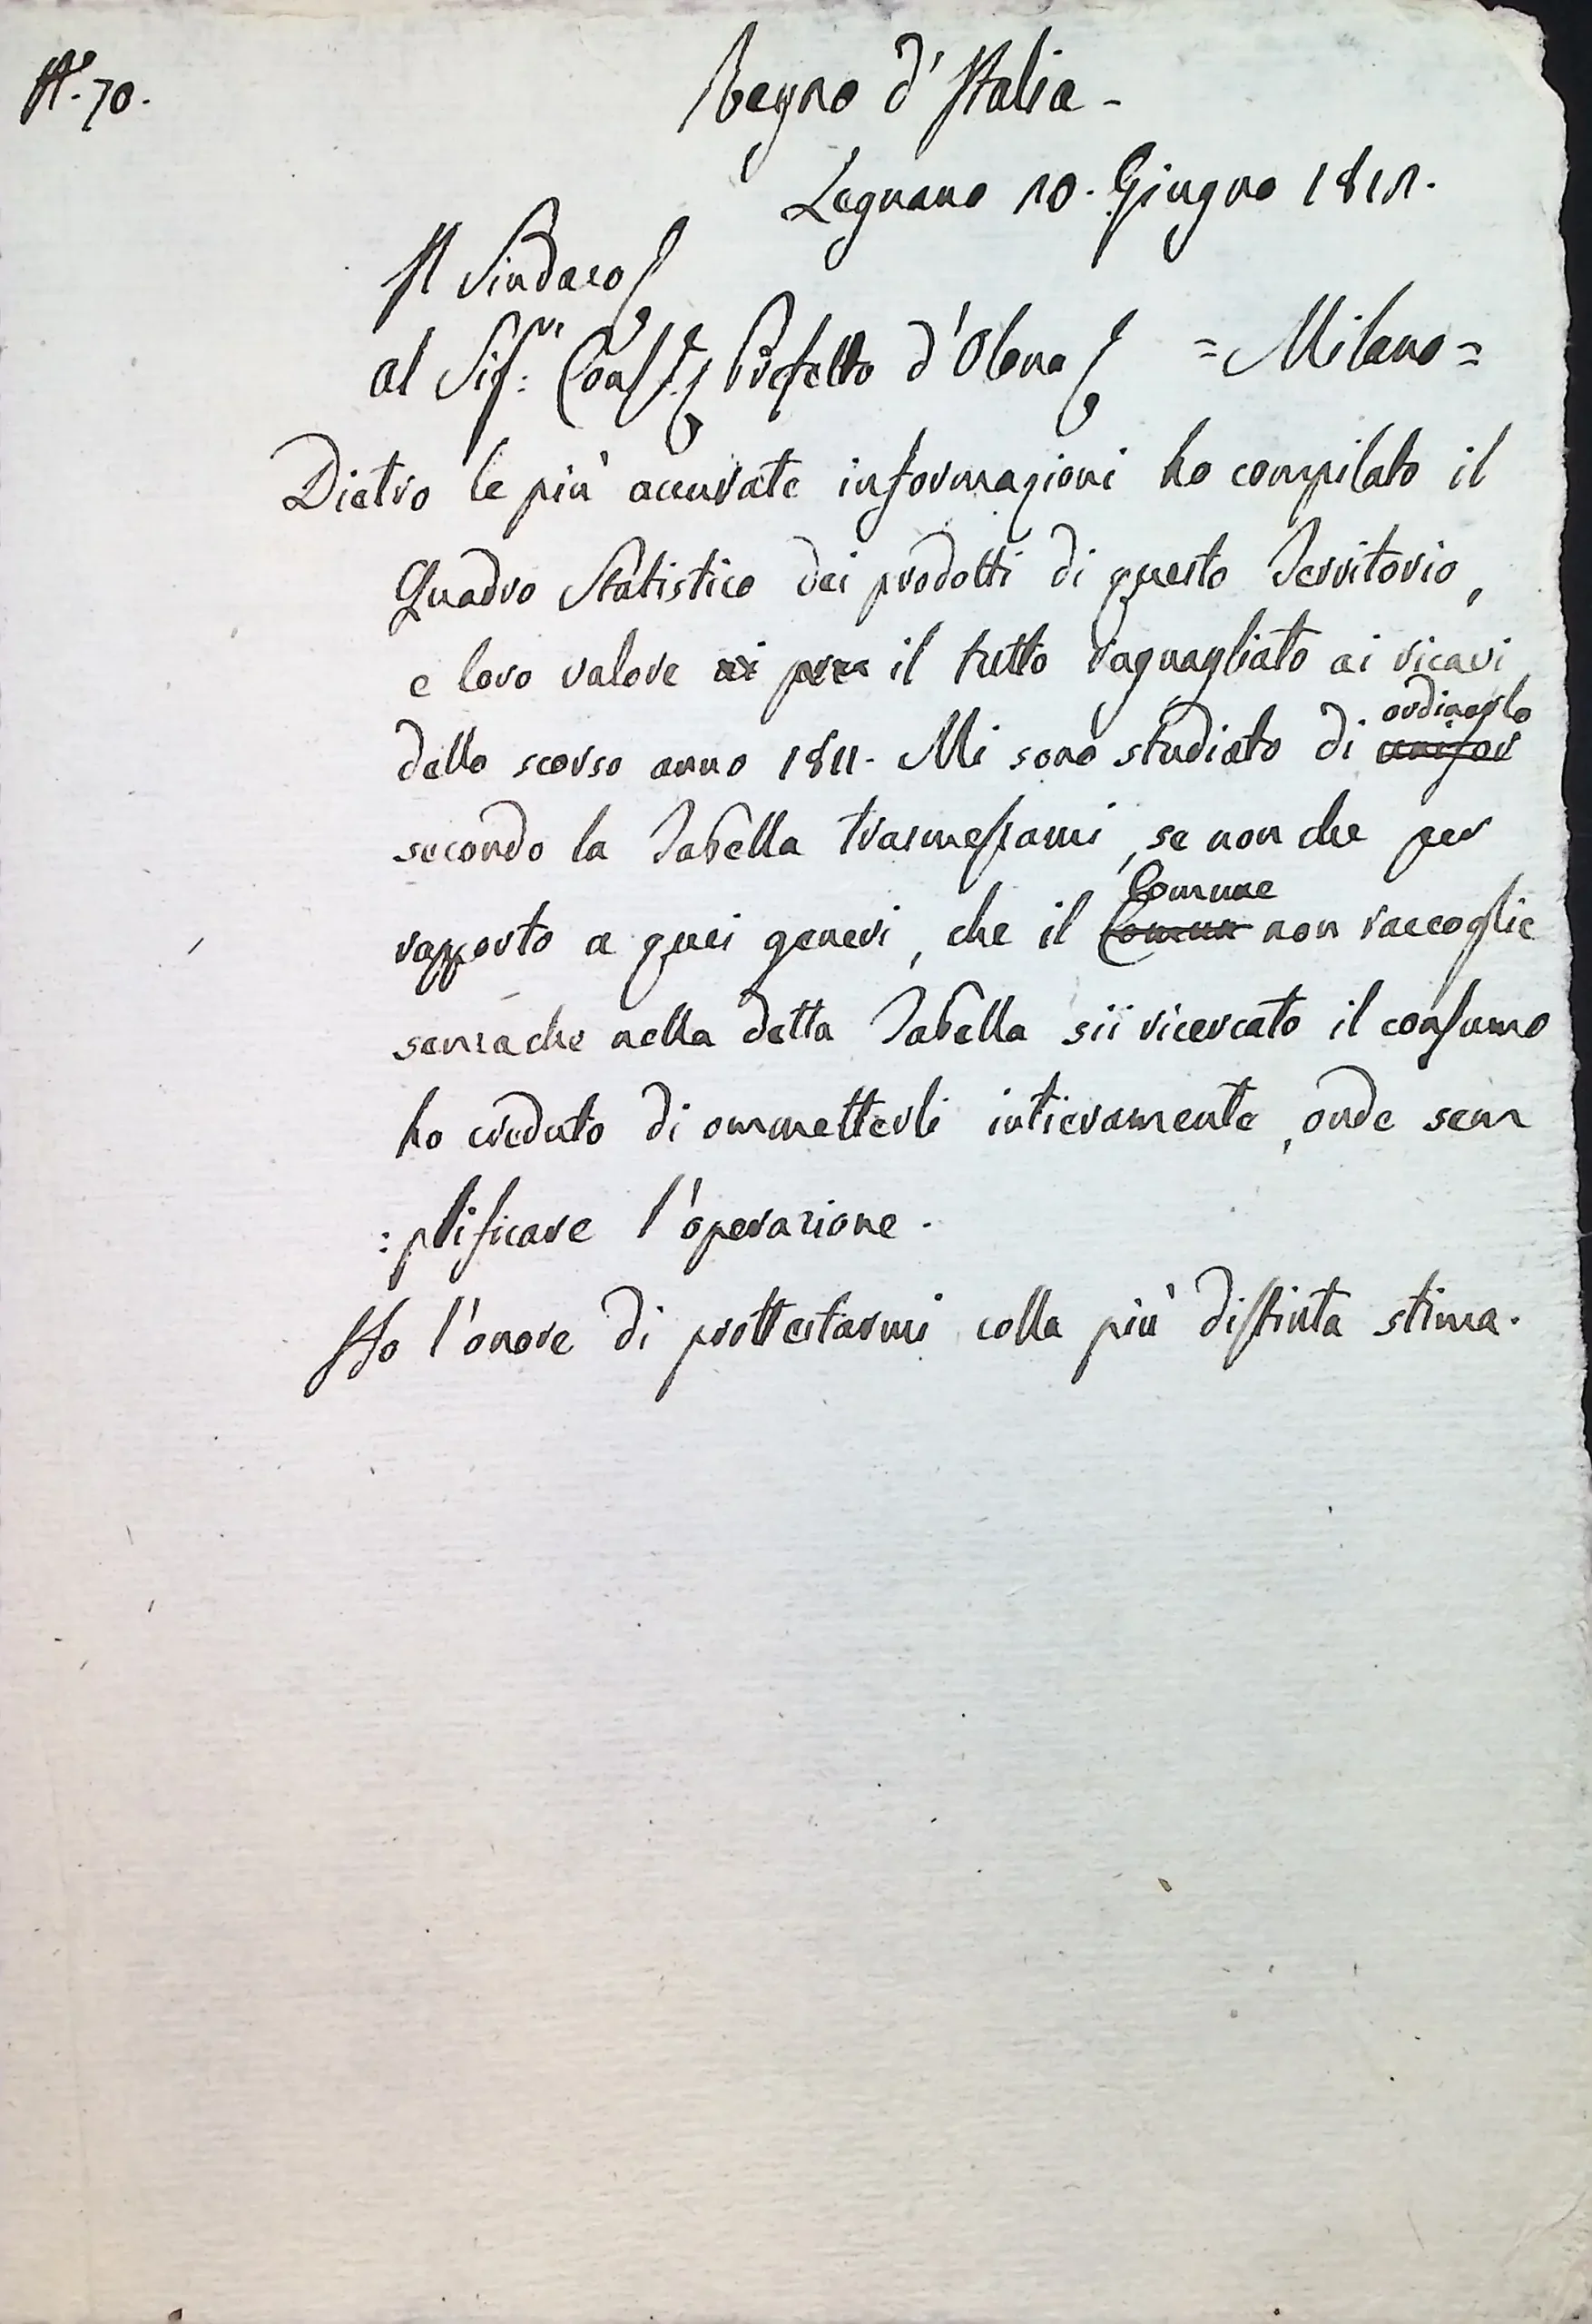 N.° 70.
Regno d'Italia -
Legnano 10. Giugno 1812.
Il Sindaco
al Sig.r Cons.re Prefetto d'Olona = Milano =
Dietro le più accurate informazioni ho compilato il
Quadro Statistico dei prodotti di questo Territorio,
e loro valore il tutto raguagliato ai ricavi
dello scorso anno 1811. Mi sono studiato di ordinarlo
secondo la Tabella trasmessami, se non che per
rapporto a quei generi, che il Comune non raccoglie
senza che nella detta Tabella sii ricercato il consumo
ho creduto di ommetterli intieramente, onde sem
:plificare l'operazione.
Ho l'onore di prottestarmi colla più distinta stima.